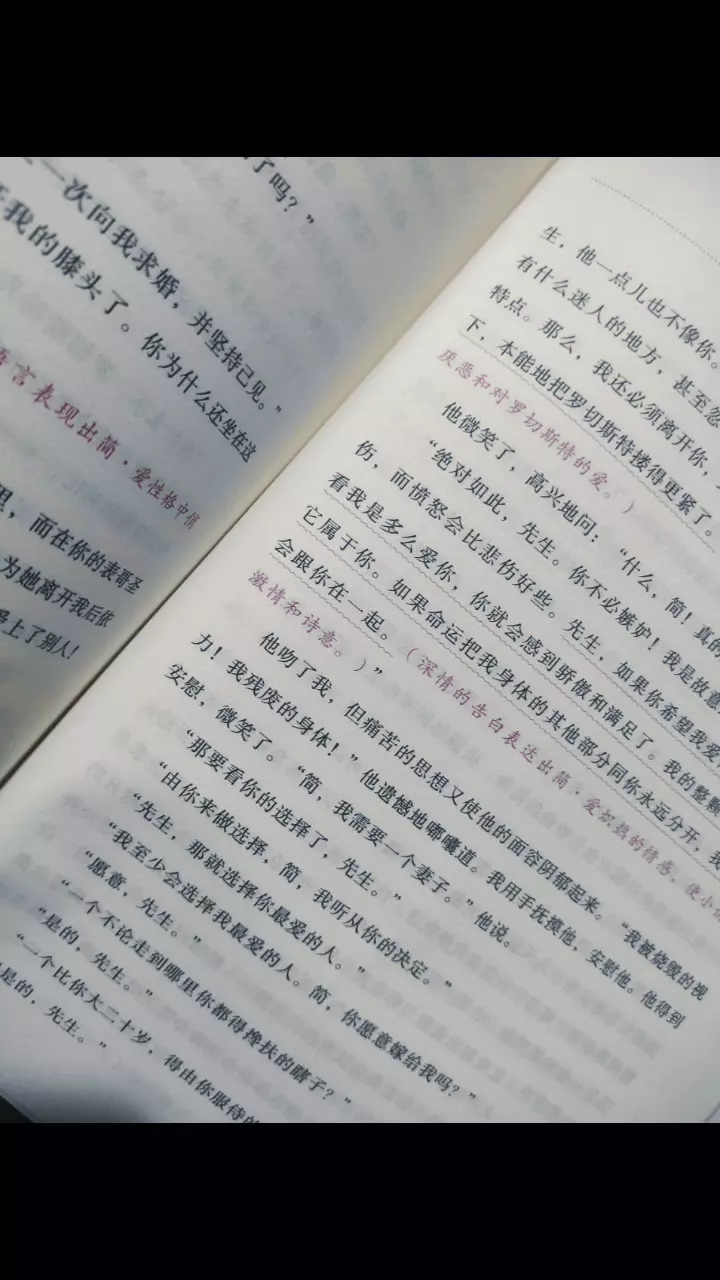 了吗？”
一次向我求婚，并坚持己见。”
我的膝头了。你为什么还坐在这
语言表现出简·爱性格中俏
里，而在你的表哥圣
为她离开我后依
上了别人！
生，他一点儿也不像你。
有什么迷人的地方，甚至忽
特点。那么，我还必须离开你，
下，本能地把罗切斯特搂得更紧了。
厌恶和对罗切斯特的爱。）
他微笑了，高兴地问：“什么，简！真的
“绝对如此，先生。你不必嫉妒！我是故意
伤，而愤怒会比悲伤好些。先生，如果你希望我爱
看我是多么爱你，你就会感到骄傲和满足了。我的整颗
它属于你。如果命运把我身体的其他部分同你永远分开，我
会跟你在一起。（深情的告白表达出简·爱炽热的情感，使小
激情和诗意。）”
他吻了我，但痛苦的思想又使他的面容阴郁起来。“我被烧毁的视
力！我残废的身体！”他遗憾地嘟囔道。我用手抚摸他，安慰他。他得到
安慰，微笑了。“简，我需要一个妻子。”他说。
“那要看你的选择了，先生。”
“由你来做选择，简，我听从你的决定。”
“先生，那就选择你最爱的人。”
“我至少会选择我最爱的人。简，你愿意嫁给我吗？”
“愿意，先生。”
“一个不论走到哪里你都得搀扶的瞎子？”
“是的，先生。”
“一个比你大二十岁，得由你服侍的
是的，先生。”